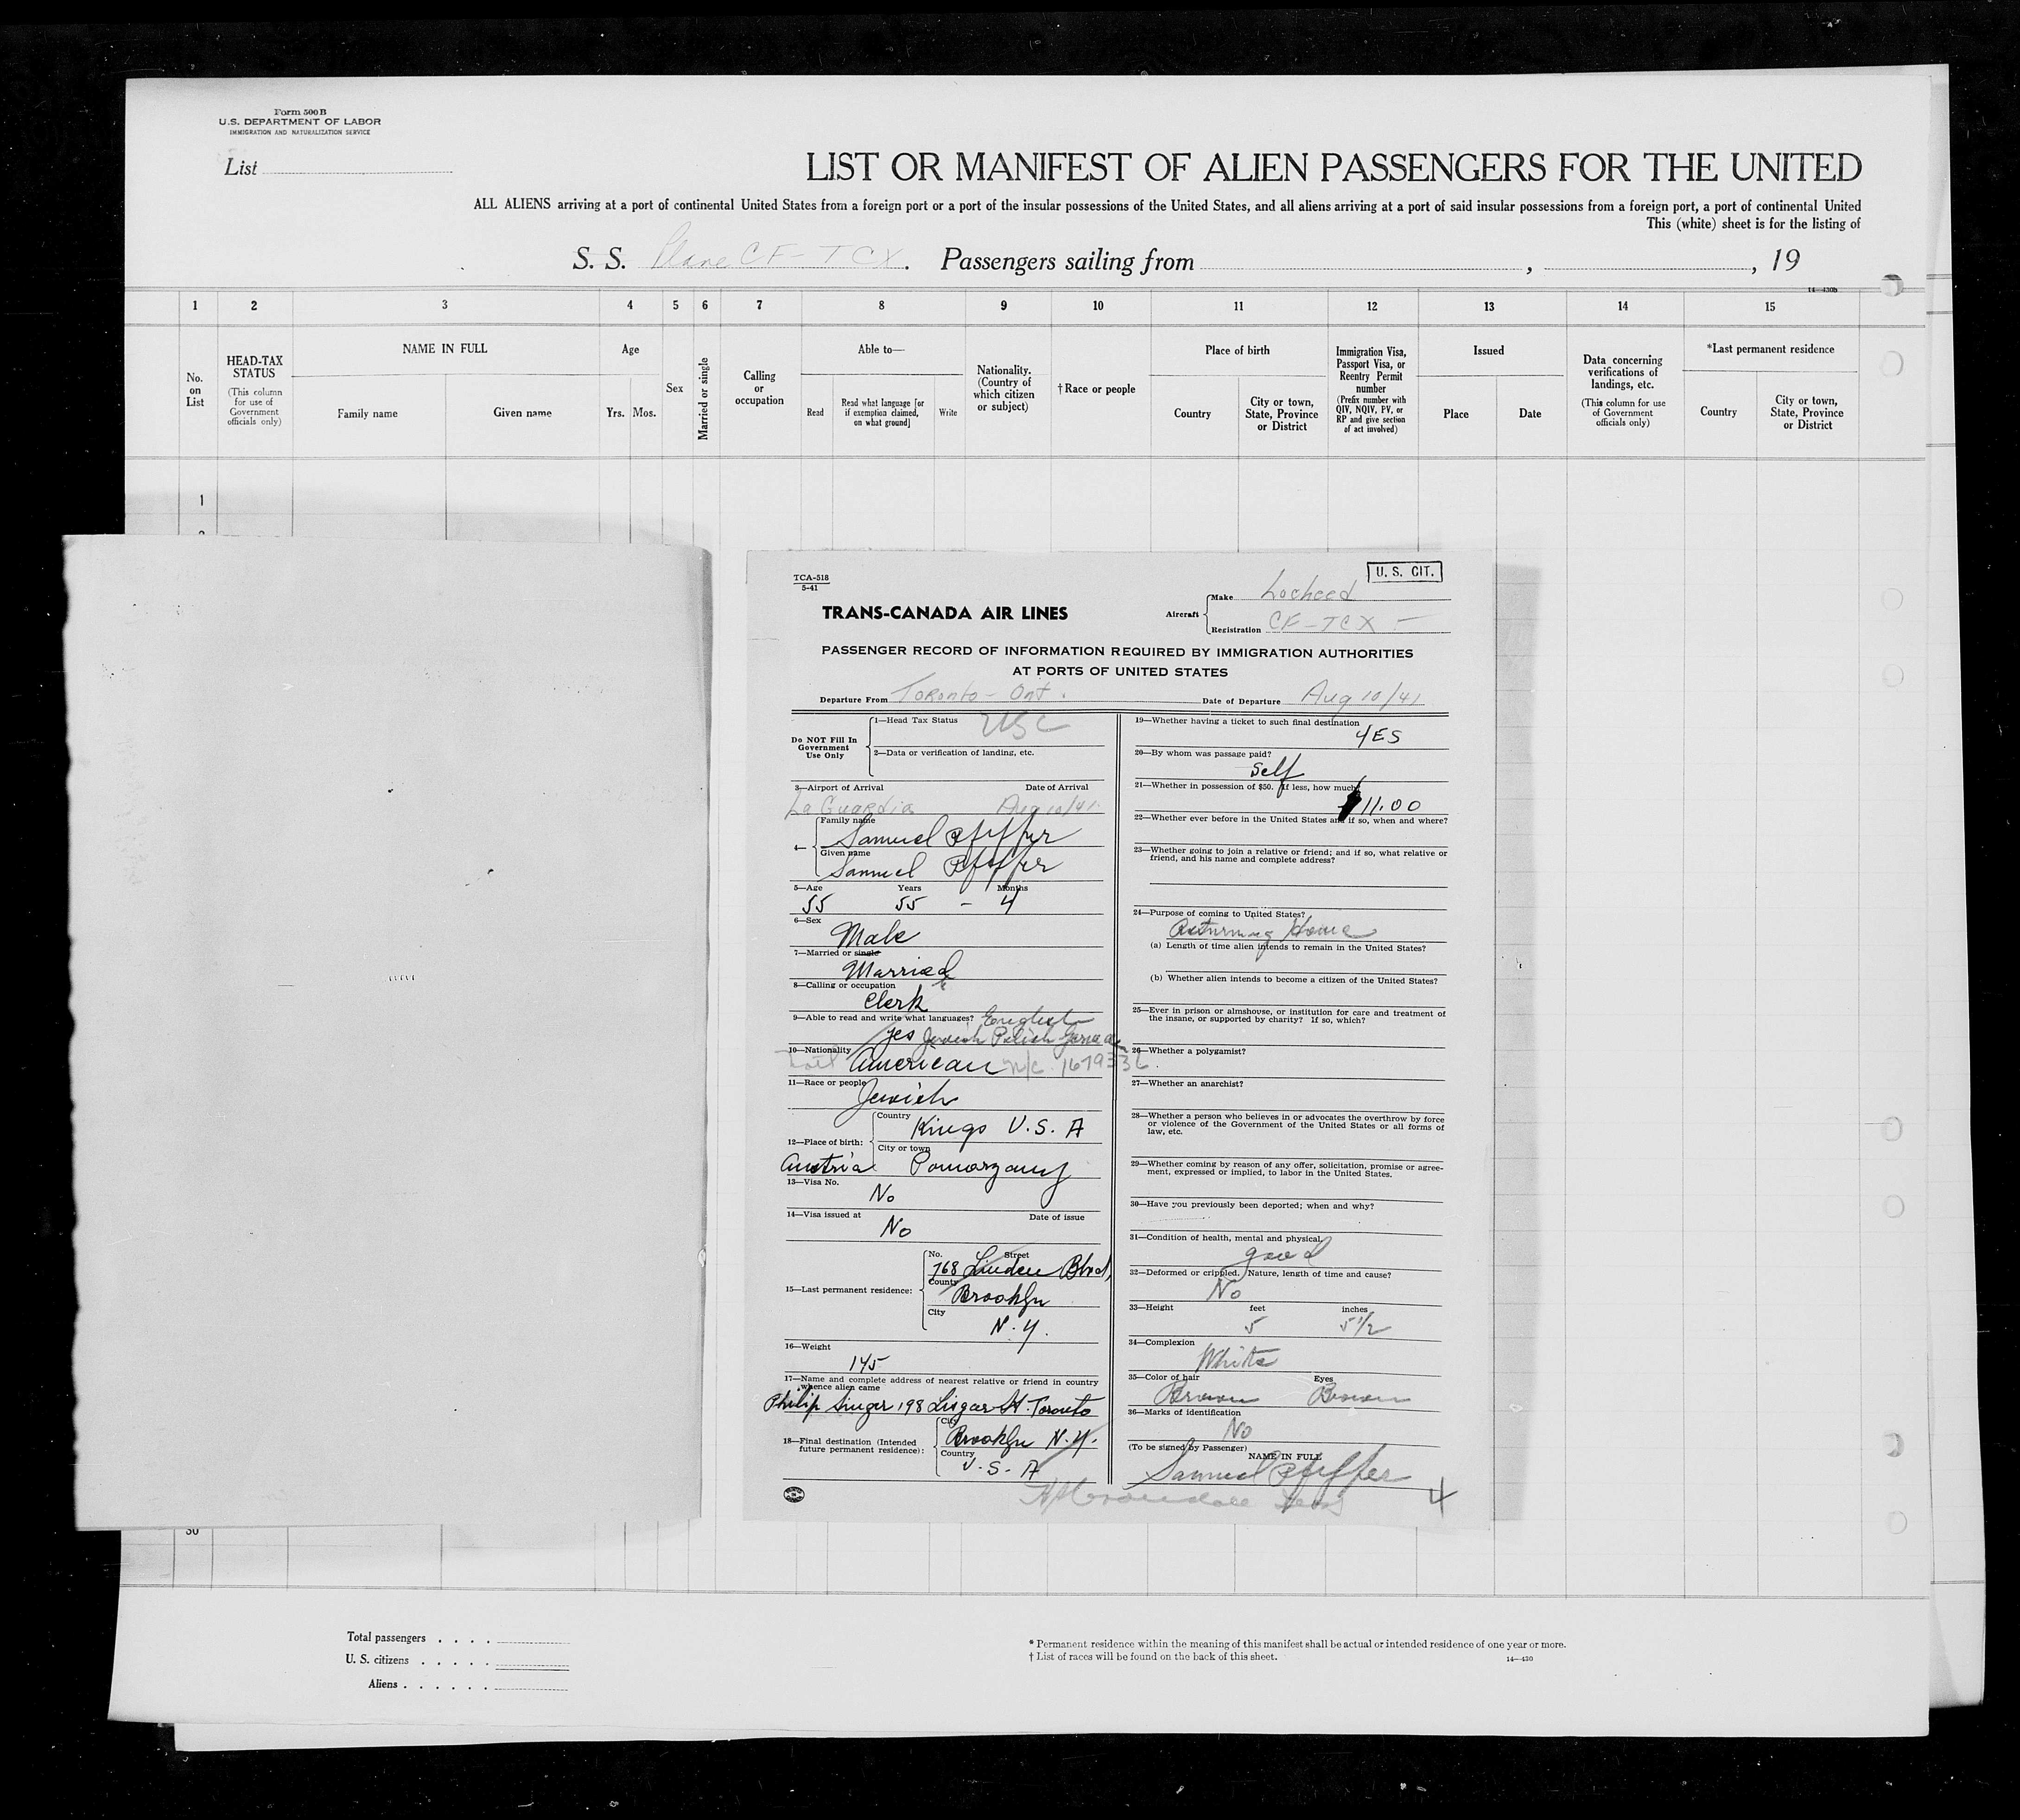 Form 500B
U.S. DEPARTMENT OF LABOR
IMMIGRATION AND NATURALIZATION SERVICE
List
LIST OR MANIFEST OF ALIEN PASSENGERS FOR THE UNITED
ALL ALIENS arriving at a port of continental United States from a foreign port or a port of the insular possessions of the United States, and all aliens arriving at a port of said insular possessions from a foreign port, a port of continental United
This (white) sheet is for the listing of
S. S. Plane CF-TCX. Passengers sailing from , , 19
14—430b
1 2 3 4 5 6 7 8 9 10 11 12 13 14 15
No. on List
HEAD-TAX STATUS
(This column for use of Government officials only)
NAME IN FULL
Family name Given name
Age
Yrs. Mos.
Sex
Married or single
Calling or occupation
Able to—
Read
Read what language [or if exemption claimed, on what ground]
Write
Nationality. (Country of which citizen or subject)
†Race or people
Place of birth
Country
City or town, State, Province or District
Immigration Visa, Passport Visa, or Reentry Permit number
(Prefix number with QIV, NQIV, PV, or RP and give section of act involved)
Issued
Place Date
Data concerning verifications of landings, etc.
(This column for use of Government officials only)
*Last permanent residence
Country
City or town, State, Province or District
1
TCA-518
5-41
U. S. CIT.
TRANS-CANADA AIR LINES
Aircraft
Make Locheed
Registration CF-TCX
PASSENGER RECORD OF INFORMATION REQUIRED BY IMMIGRATION AUTHORITIES
AT PORTS OF UNITED STATES
Departure From Toronto - Ont. Date of Departure Aug 10/41
Do NOT Fill In Government Use Only
1—Head Tax Status USC
2—Data or verification of landing, etc.
3—Airport of Arrival Date of Arrival
La Guardia Aug 10/41.
4—
Family name
Samuel Pfeffer
Given name
Samuel Pfeffer
5—Age Years Months
55 55 - 4
6—Sex
Male
7—Married or single
Married
8—Calling or occupation
Clerk
9—Able to read and write what languages? English
yes Jewish Polish German
10—Nationality
American n/c 1679336
11—Race or people
Jewish
12—Place of birth:
Country
Kings U.S.A
City or town
Austria Pomorzany
13—Visa No.
No
14—Visa issued at Date of issue
No
15—Last permanent residence:
No. Street
768 Linden Blvd,
County
Brooklyn
City
N.Y.
16—Weight
145
17—Name and complete address of nearest relative or friend in country
whence alien came
Philip Singer 198 Lisgar St. Toronto
18—Final destination (Intended future permanent residence):
City
Brooklyn N.Y.
Country
U.S.A
19—Whether having a ticket to such final destination
YES
20—By whom was passage paid?
Self
21—Whether in possession of $50. If less, how much?
11.00
22—Whether ever before in the United States and if so, when and where?
23—Whether going to join a relative or friend; and if so, what relative or
friend, and his name and complete address?
24—Purpose of coming to United States?
Returning Home
(a) Length of time alien intends to remain in the United States?
(b) Whether alien intends to become a citizen of the United States?
25—Ever in prison or almshouse, or institution for care and treatment of
the insane, or supported by charity? If so, which?
26—Whether a polygamist?
27—Whether an anarchist?
28—Whether a person who believes in or advocates the overthrow by force
or violence of the Government of the United States or all forms of
law, etc.
29—Whether coming by reason of any offer, solicitation, promise or agree-
ment, expressed or implied, to labor in the United States.
30—Have you previously been deported; when and why?
31—Condition of health, mental and physical.
good
32—Deformed or crippled. Nature, length of time and cause?
No
33—Height feet inches
5 5 1/2
34—Complexion
White
35—Color of hair Eyes
Brown Brown
36—Marks of identification
No
(To be signed by Passenger) NAME IN FULL
Samuel Pfeffer
4
30
Total passengers . . . .
U. S. citizens . . . . .
Aliens . . . . . .
* Permanent residence within the meaning of this manifest shall be actual or intended residence of one year or more.
† List of races will be found on the back of this sheet.
14—430